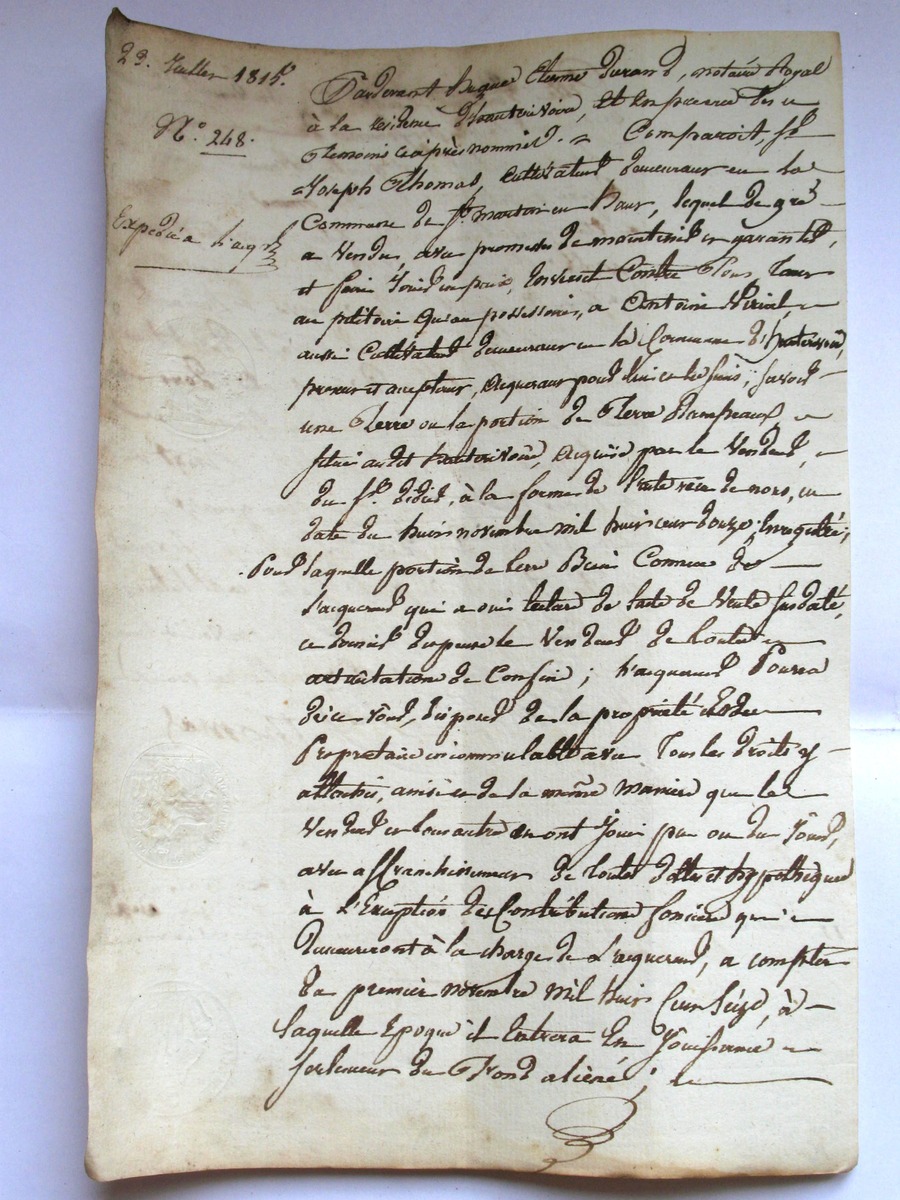 23. Juillet 1815.
N.º 248.
Expédié a l'acqr
Pardevant Hugue Etienne Durand, notaire Royal
à la résidence d'hauterivoire, et en présence des
Témoins ci après nommés. Comparoit, Sr
Joseph Thomas, cultivateur demeurant en la
Commune de St. martin en haut, lequel de gré
a Vendu, avec promesses de maintenir et garantir,
et faire Jouir en paix, envers et Contre Tous, Tant
au pétitoire qu'au possessoire, a Antoine
aussi Cultivateur demeurant en la Commune d'hauterivoire,
présent et acceptant, acquéreur pour lui et les siens, savoir
une Terre ou la portion de Terre
située audit hauterivoire, acquise par le Vendeur,
du Sr. à la forme de l'acte reçu de nous, en
date du huit novembre mil huit cent douze, Enregistré;
Pour laquelle portion de terre Bien Connue de
L'acquéreur qui a oui lecture de l'acte de Vente susdaté,
ce dernier dispense le Vendeur de toute
de Confins; L'acquéreur Pourra
dès ce Jour, disposer de la propriété
Propriétaire incommutable avec Tous les droits y
attachés, ainsi et de la même manière que le
Vendeur et tous autres en ont Joui pu ou du Jouir,
avec affranchissement de toutes dettes et hypothèques
à L'Exception des Contributions foncières qui
demeureront à la charge de L'acquéreur, a compter
du premier novembre mil huit Cent Seize, à
laquelle Epoque il Entrera En Jouissance
seulement du Fond aliéné;